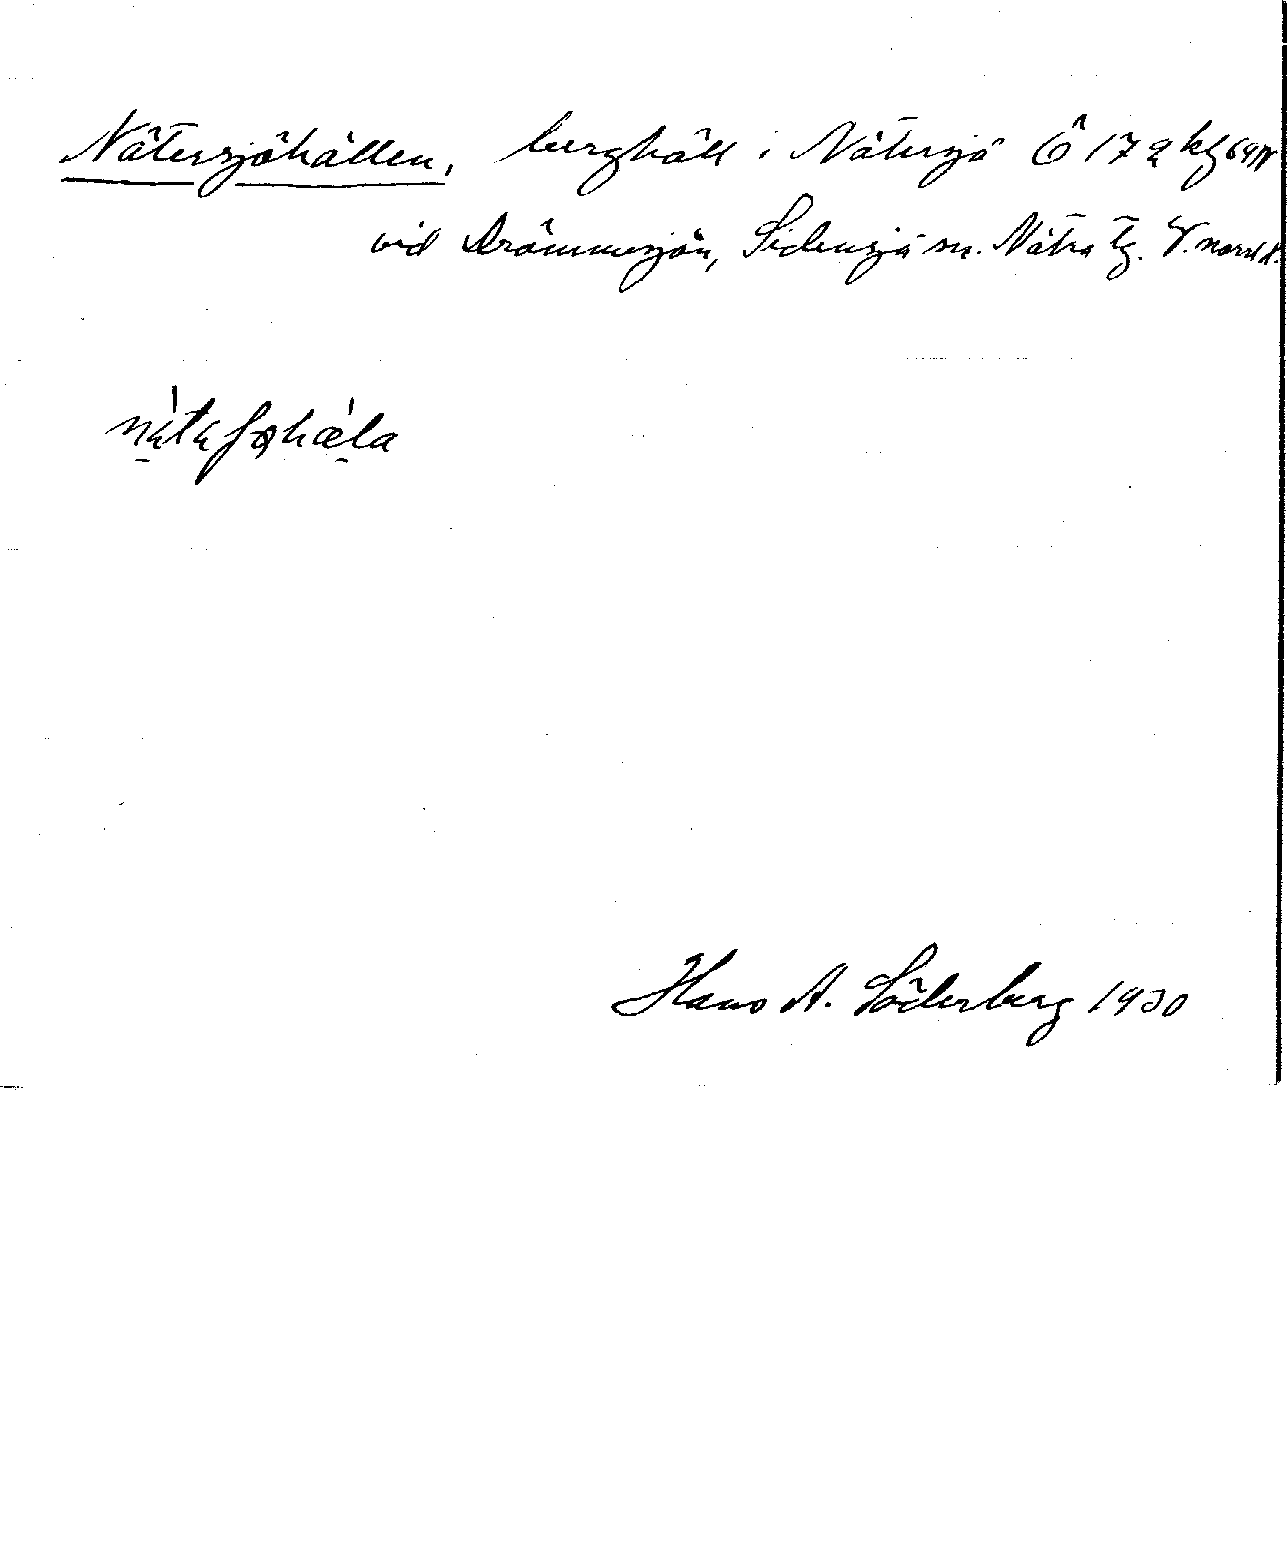 Nätersjöhällen, berghäll i Nätersjö Ö 17 a
vid Drömmesjön, Sidensjö sn. Nätra tg. V. norrl.
Hans A. Söderberg 1930